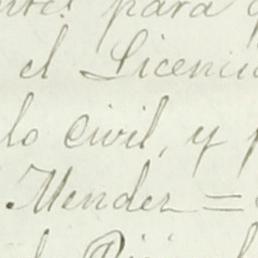 para
el Licenci
lo civil, y
Mendez =